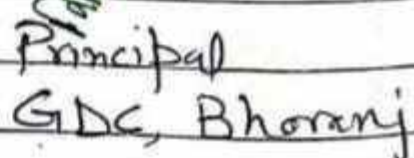 Principal
GDC, Bhoranj